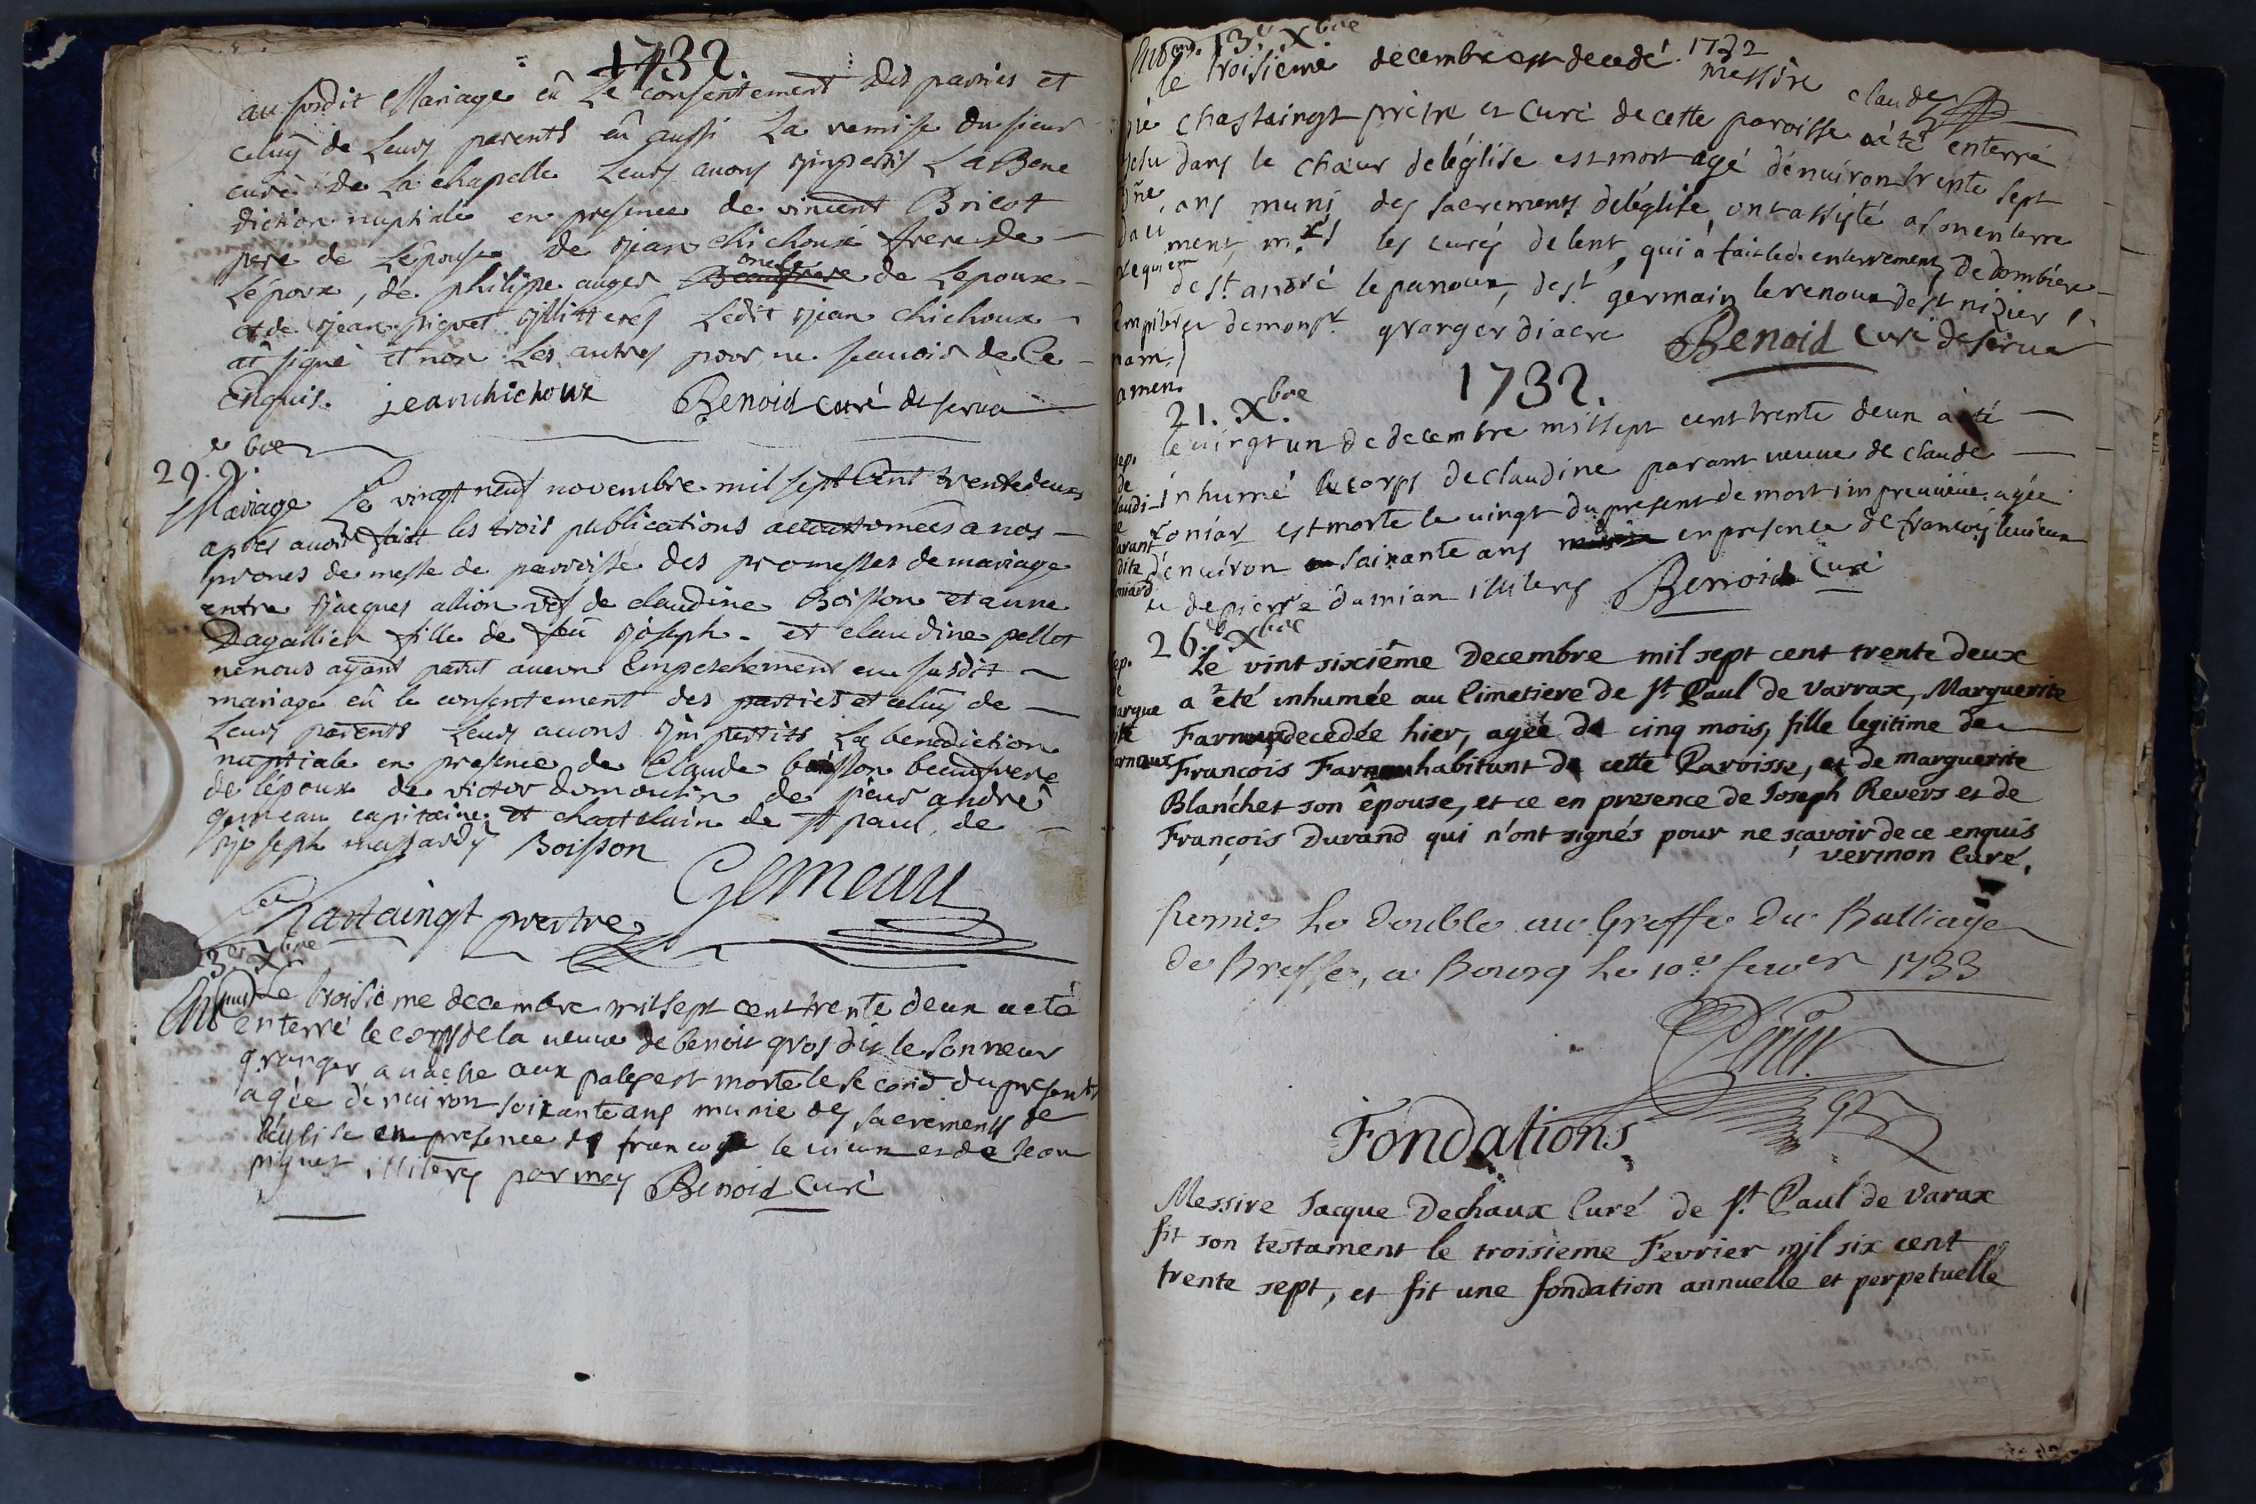 1732.
au susdit Mariage eû Le consentement des parties et
celuy de Leurs parents eû aussi La remise du sieur
curé de La chapelle Leurs avons imperti La Bene
diction nuptiale en presence de vincent Bricot
pere de Lépouse de jean chichoux frere de
Lépoux, de philippe auger oncle de Lepouse
et de jean piquet illitteres Ledit jean chichoux
at signé et non Les autres pour ne scavoir de Ce
Enquis. jean chichoux Benoid curé de serva
29. 9.e bre
Mariage Le vingt neuf novembre mil sept Cent trente deux
aprés avoir fait les trois publications accoutumées a nos
prones de messe de parroisse des promesses de mariage
entre jacques allion vef de claudine Boisson et anne
Dagallier fille de feû joseph et claudine pellet
ne nous ayant parut aucun Empeschement au susdit
mariage eû le consentement des parties et celuy de
Leurs parents Leurs avons impartits La benediction
nuptiale en presence de Claude boisson beaufrere
de lépoux de victor dumoulin de sieur andré
gemeau capitaine et chastelain de st paul, de
joseph massardy Boisson
Gemeau
Chastaingt prestre
3e Xbre
Le troisieme decembre mil sept cent trente deux a eté
enterré le corps de la veuve de benoit gros dit le sonneur
granger a vache aux pales est morte le second du present
agée dénviron soixante ans munie des sacrements de
léglise en presence de francois le vieux et de jean
piquet illiterés par moy Benoid curé
3e Xbre 1732
le troisieme decembre est decedé messire claude
chastaingt prêtre et curé de cette paroisse a été enterré
dans le choeur de léglise est mort agé dénviron trente sept
ans muni des sacrements déléglise ont assisté a son enterre
ment mrs les curés de lent, qui a fait led. enterrement, de dombiere
de st. andré le panoux, de st germain le renoux de st nizier
et de monsr granger diacre Benoid curé de servas
requiem
nam
amen.
1732.
21. Xbre
le vingt un de decembre mil sept cent trente deux a été
inhumé le corps de claudine parant veuve de claude
coniar est morte le vingt du present de mort impreveüe, agée
dénviron soixante ans en presence de francois le vieux
et de pierre damian illiterés Benoid curé
26.e Xbre
Le vint sixiême Decembre mil sept cent trente deux
a été inhumée au Cimetiere de St. Paul de Varrax, Marguerite
Farnoux decedée hier, agée de cinq mois, fille legitime de
François Farnoux habitant de cette Paroisse, et de marguerite
Blanchet son êpouse, et ce en presence de Joseph Revers et de
François Durand qui n'ont signés pour ne sçavoir de ce enquis
vermon Curé.
Remis Le double au Greffe du Balliage
de Bresse, a Bourg Le 10e fevrer 1733
Fondations
Messire Jacque Dechaux Curé de St. Paul de Varax
fit son testament le troisieme Fevrier mil six cent
trente sept, et fit une fondation annuelle et perpetuelle